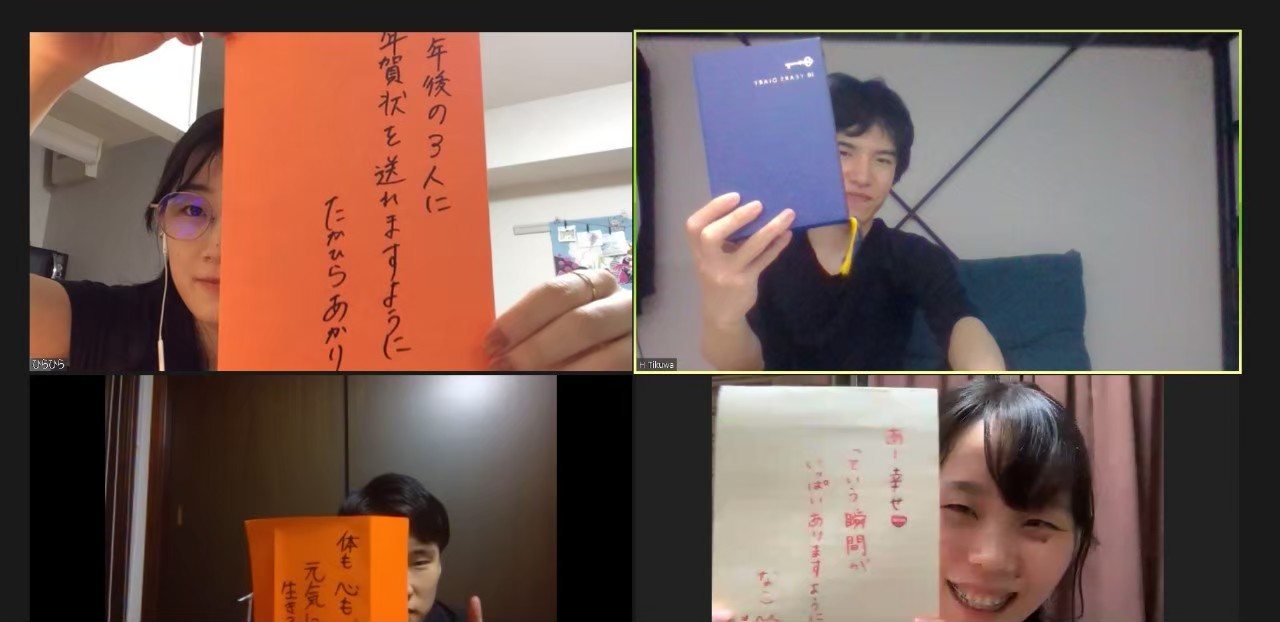 年後の3人に
年賀状を送れますように
たかひらあかり
ひらひら
10 YEARS DIARY
H Tikuwa
体も 心も
元気に
生き
あー幸せ
っていう瞬間が
いっぱいありますように
なこ